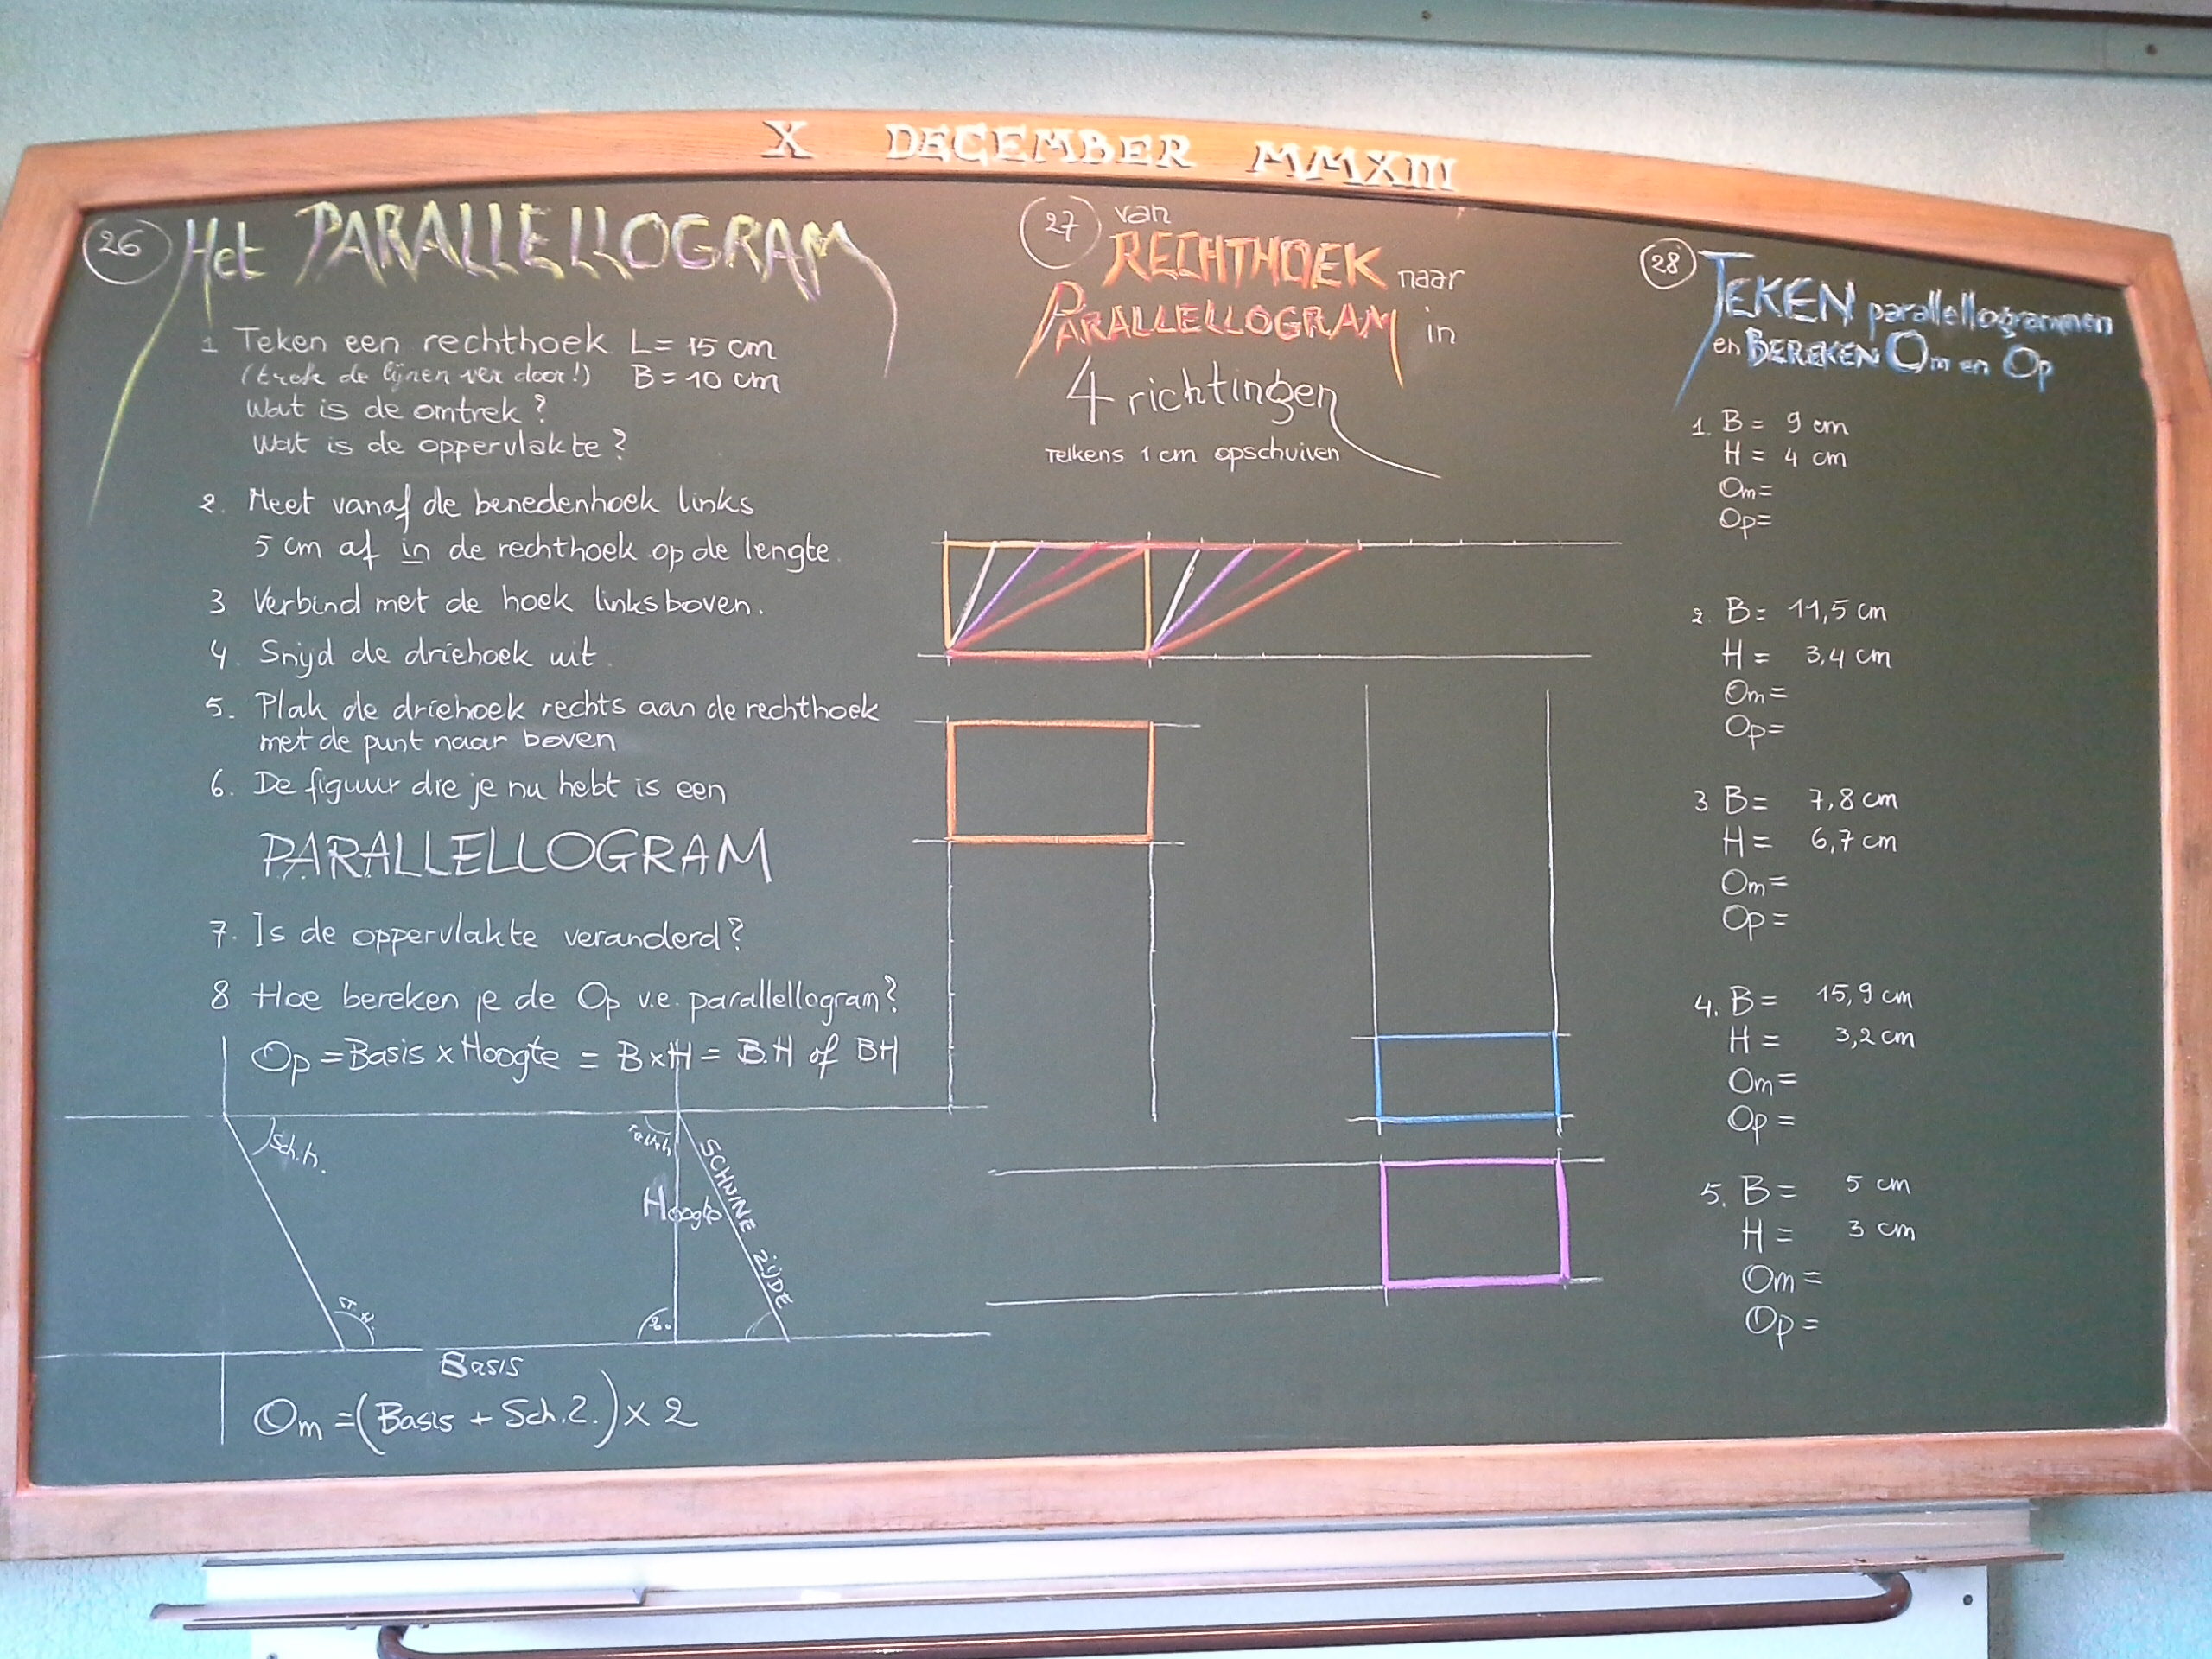 X DECEMBER MMXIII
26 Het PARALLELLOGRAM
1 Teken een rechthoek L= 15 cm
(trek de lijnen ver door!) B=10 cm
Wat is de omtrek?
Wat is de oppervlakte?
2. Meet vanaf de benedenhoek links
5 cm af in de rechthoek op de lengte.
3 Verbind met de hoek linksboven.
4. Snijd de driehoek uit.
5. Plak de driehoek rechts aan de rechthoek
met de punt naar boven
6. De figuur die je nu hebt is een
PARALLELLOGRAM
7. Is de oppervlakte veranderd?
8 Hoe bereken je de Op v.e. parallellogram?
Op = Basis x Hoogte = B x H = B.H of BH
Sch.h.
Hoogte
SCHUINE ZIJDE
Basis
Om = (Basis + Sch.Z.) x 2
27 van
RECHTHOEK naar
PARALLELLOGRAM in
4 richtingen
Telkens 1 cm opschuiven
28 TEKEN parallellogrammen
en BEREKEN Om en Op
1. B = 9 cm
H = 4 cm
Om=
Op=
2. B= 11,5 cm
H = 3,4 cm
Om=
Op=
3 B= 7,8 cm
H = 6,7 cm
Om=
Op=
4. B= 15,9 cm
H = 3,2 cm
Om=
Op =
5. B= 5 cm
H = 3 cm
Om =
Op =